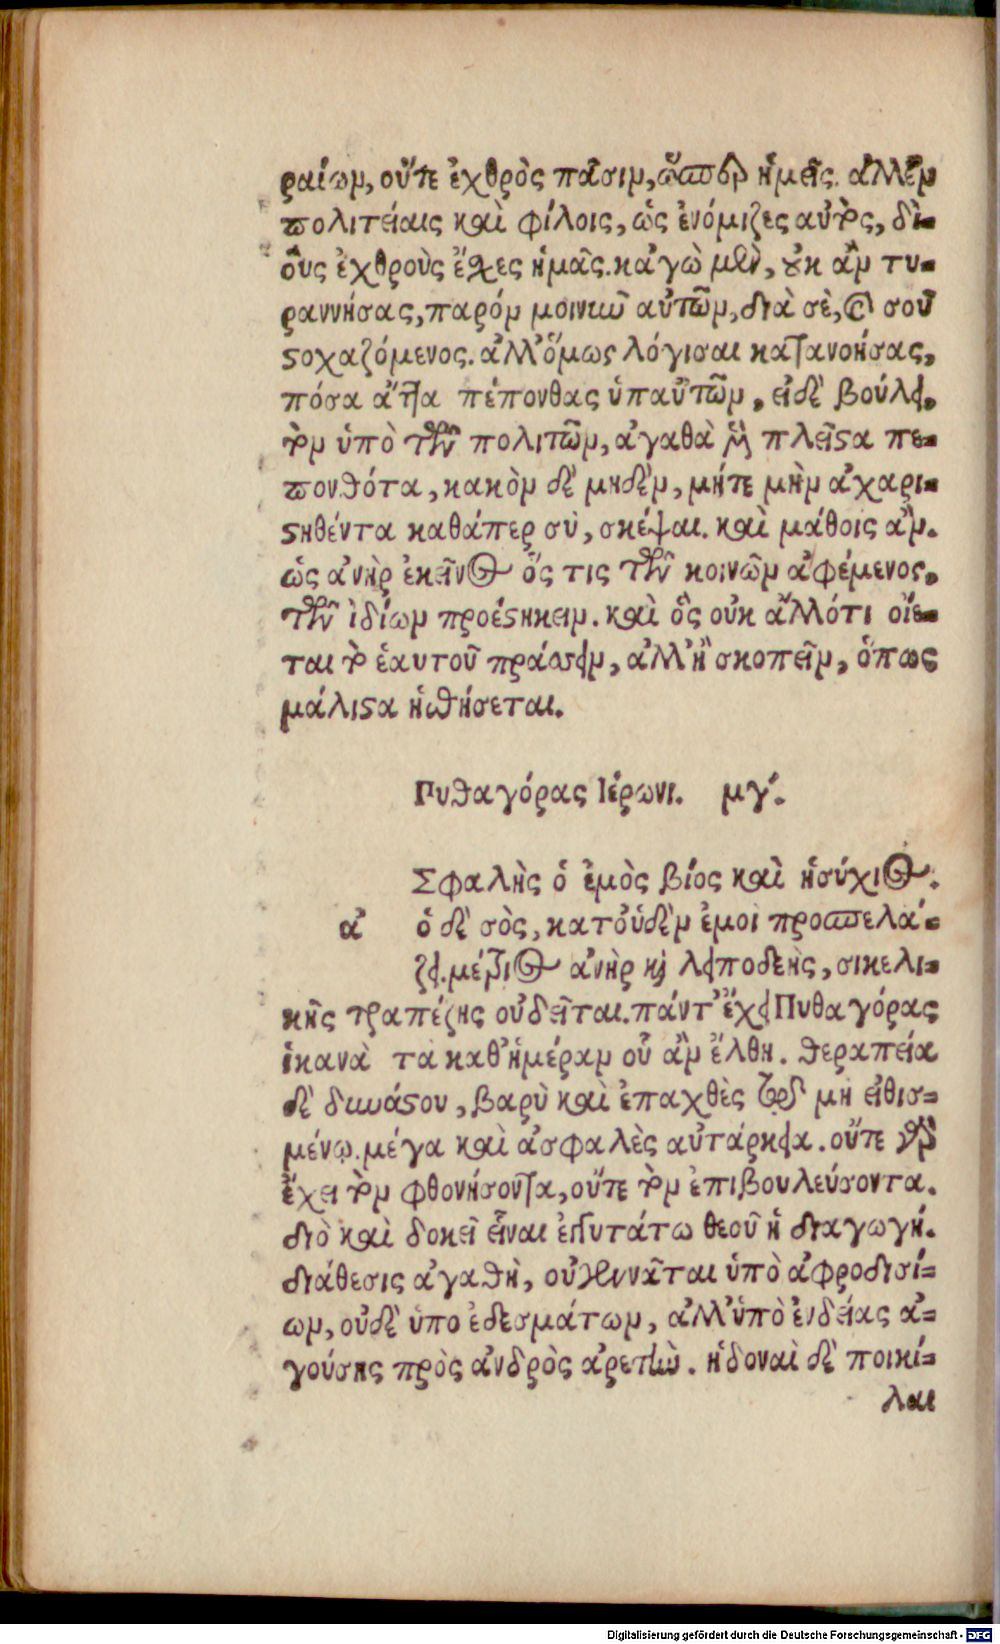 ραίων, οὔτε ἐχθρὸς πᾶσιν, ὥσπερ ἡμεῖς. ἀλλ' ἐν
πολιτείαις καὶ φίλοις, ὡς ἐνόμιζες αὐτὸς, δι-
οὓς ἐχθροὺς ἔχες ἡμᾶς. κἀγὼ μὲν, οὐκ ἂν τυ-
ραννήσας, παρόν μοι νικῶ αὐτῶν, διὰ σὲ, καὶ σοῦ
στοχαζόμενος. ἀλλ' ὅμως λόγισαι κατανοήσας,
πόσα ἄττα πέπονθας ὑπ' αὐτῶν. εἰ δὲ βούλει,
τὸν ὑπὸ τῶν πολιτῶν, ἀγαθὰ μὲν πλεῖστα πε-
πονθότα, κακὸν δὲ μηδὲν, μήτε μὴν ἀχαρι-
στηθέντα καθάπερ σὺ, σκέψαι. καὶ μάθοις ἂν.
ὡς ἀνὴρ ἐκεῖνος ὅς τις τῶν κοινῶν ἀφέμενος.
τῶν ἰδίων προέστηκειν. καὶ ὃς οὐκ ἄλλό τι οἴε-
ται τὸ ἑαυτοῦ πράσσειν, ἀλλ' ἢ σκοπεῖν, ὅπως
μάλιστα ἡσθήσεται.
Πυθαγόρας Ἱέρωνι. μγ΄.
Σφαλὴς ὁ ἐμὸς βίος καὶ ἡσύχιος.
ἀ ὁ δὲ σὸς, κατ' οὐδὲν ἐμοι προσπελά-
ζει. μέτριος ἀνὴρ καὶ λειποδεὴς, σικελι-
κῆς τραπέζης οὐ δεῖται. πάντ' ἔχει Πυθαγόρας
ἱκανὰ τὰ καθ' ἡμέραν οὗ ἂν ἔλθῃ. θεραπεία
δὲ δυνάστου, βαρὺ καὶ ἐπαχθὲς τῷ μὴ εἰθισ-
μένῳ. μέγα καὶ ἀσφαλὲς αὐτάρκεια. οὔτε γὰρ
ἔχει τὸν φθονήσοντα, οὔτε τὸν ἐπιβουλεύσοντα.
διὸ καὶ δοκεῖ εἶναι ἐγγυτάτω θεοῦ ἡ διαγωγή.
διάθεσις ἀγαθὴ, οὐ γεννᾶται ὑπὸ ἀφροδισί-
ων, οὐδὲ ὑπο ἐδεσμάτων, ἀλλ' ὑπὸ ἐνδείας ἀ-
γούσης πρὸς ἀνδρὸς ἀρετὴν. ἡδοναὶ δὲ ποικί-
λαι
Digitalisierung gefördert durch die Deutsche Forschungsgemeinschaft - DFG